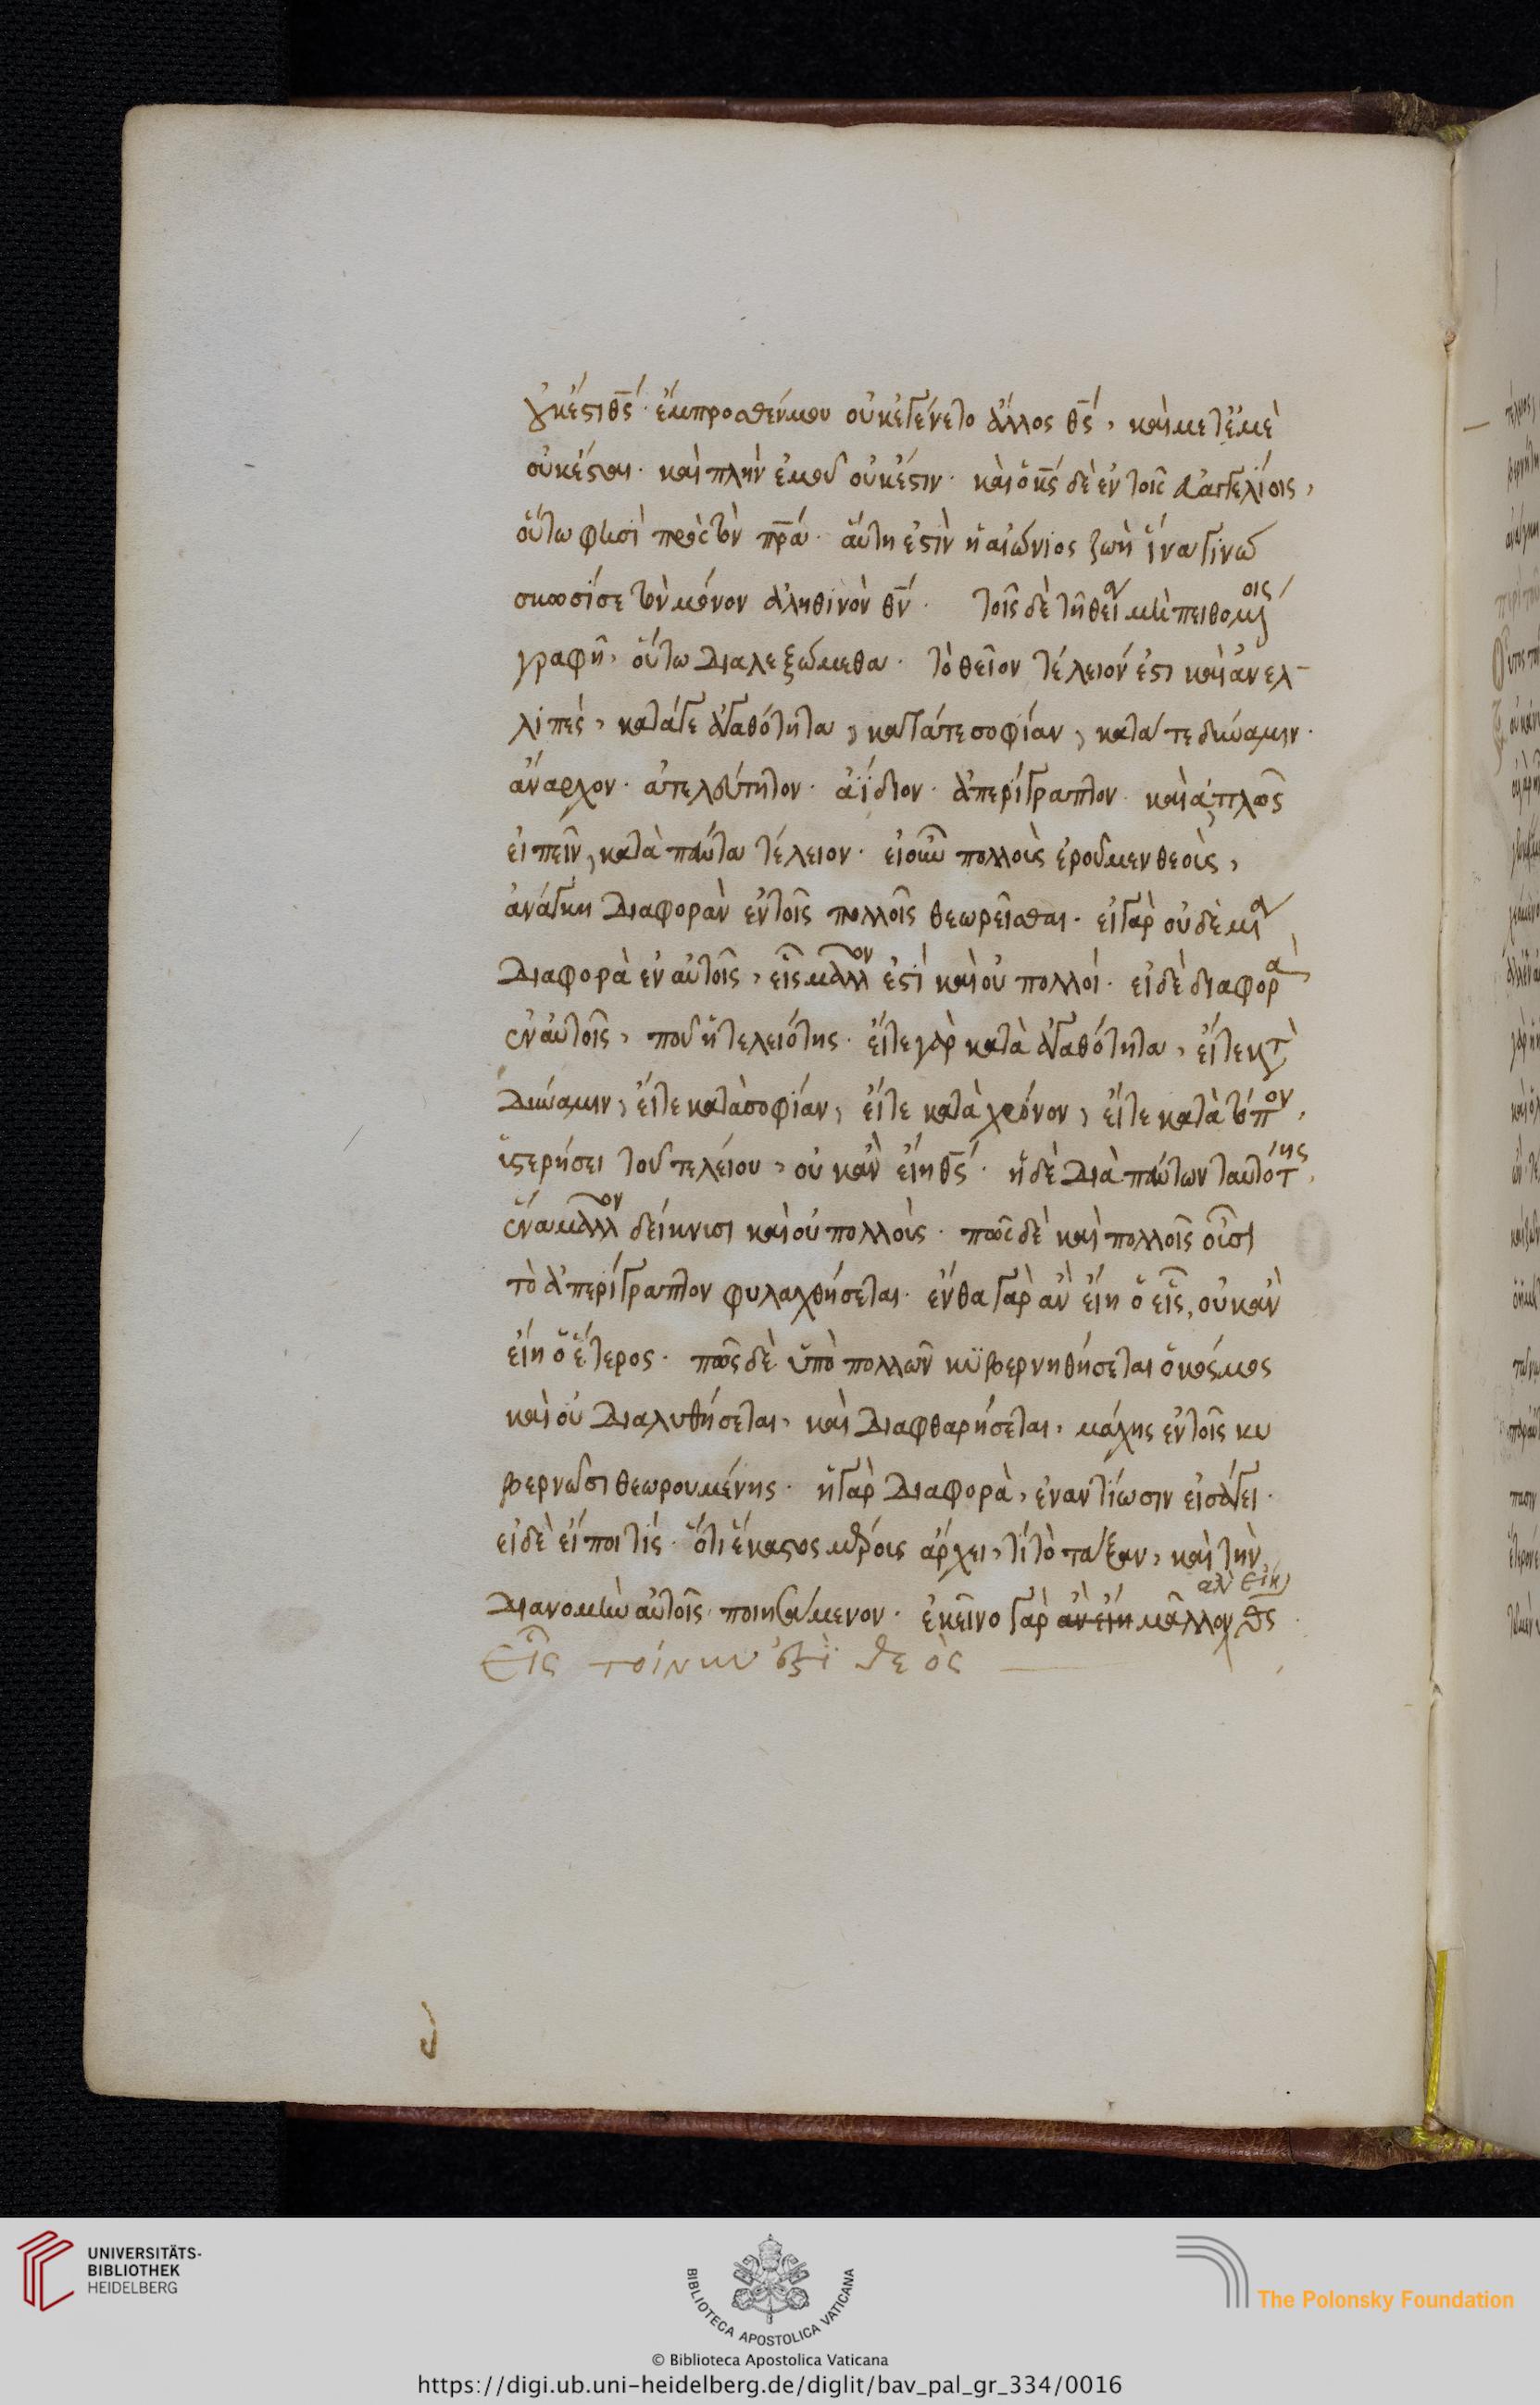 οὐκ ἔστι θς· ἔμπροσθέν μου οὐκ ἐγένετο ἄλλος θς, καὶ μετ' ἐμὲ
οὐκ ἔσται· καὶ πλὴν ἐμοῦ οὐκ ἔστιν· καὶ ὁ κς δὲ ἐν τοῖς εὐαγγελίοις,
οὕτω φησὶ πρὸς τὸν πρα· αὕτη ἐστὶν ἡ αἰώνιος ζωὴ ἵνα γινώ
σκωσί σε τὸν μόνον ἀληθινὸν θν· τοῖς δὲ τῆ θεία μὴ πειθομένοις
γραφῆ, οὕτω διαλεξώμεθα· τὸ θεῖον τέλειόν ἐστι καὶ ἀνελ-
λιπὲς, κατά γε ἀγαθότητα, κατά τε σοφίαν, κατά τε δύναμιν·
ἄναρχον· ἀτελεύτητον· ἀΐδιον· ἀπερίγραπτον· καὶ ἁπλῶς
εἰπεῖν, κατὰ πάντα τέλειον· εἰ οὖν πολλοὺς ἐροῦμεν θεοὺς,
ἀνάγκη διαφορὰν ἐν τοῖς πολλοῖς θεωρεῖσθαι· εἰ γὰρ οὐδεμία
διαφορὰ ἐν αὐτοῖς, εἷς μᾶλλον ἐστὶ καὶ οὐ πολλοί· εἰ δὲ διαφορὰ
ἐν αὐτοῖς, ποῦ ἡ τελειότης· εἴτε γὰρ κατὰ ἀγαθότητα, εἴτε κατὰ
δύναμιν, εἴτε κατὰ σοφίαν, εἴτε κατὰ χρόνον, εἴτε κατὰ τόπον,
ὑστερήσει τοῦ τελείου, οὐκ ἂν εἴη θς· ἡ δὲ διὰ πάντων ταυτότης,
ἕνα μᾶλλον δείκνυσι καὶ οὐ πολλούς· πῶς δὲ καὶ πολλοῖς οὖσι
τὸ ἀπερίγραπτον φυλαχθήσεται· ἔνθα γὰρ ἂν εἴη ὁ εἷς, οὐκ ἂν
εἴη ὁ ἕτερος· πῶς δὲ ὑπὸ πολλῶν κυβερνηθήσεται ὁ κόσμος
καὶ οὐ διαλυθήσεται, καὶ διαφθαρήσεται, μάχης ἐν τοῖς κυ
βερνῶσι θεωρουμένης· ἡ γὰρ διαφορὰ, ἐναντίωσιν εἰσάγει·
εἰ δὲ εἴποι τίς· ὅτι ἕκαστος μέρους ἄρχει, τί τὸ τάξαν, καὶ τὴν
διανομὴν αὐτοῖς ποιησάμενον· ἐκεῖνο γὰρ ἂν εἴη μᾶλλον θς
ἂν εἴη
Εἷς τοίνυν ἐστὶ θεὸς
UNIVERSITÄTS-
BIBLIOTHEK
HEIDELBERG
BIBLIOTECA APOSTOLICA VATICANA
The Polonsky Foundation
© Biblioteca Apostolica Vaticana
https://digi.ub.uni-heidelberg.de/diglit/bav_pal_gr_334/0016